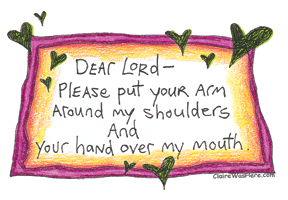 DEAR LORD–
PLEASE put your ARM
Around my shoulders
And
your hand over my mouth.
ClaireWasHere.com